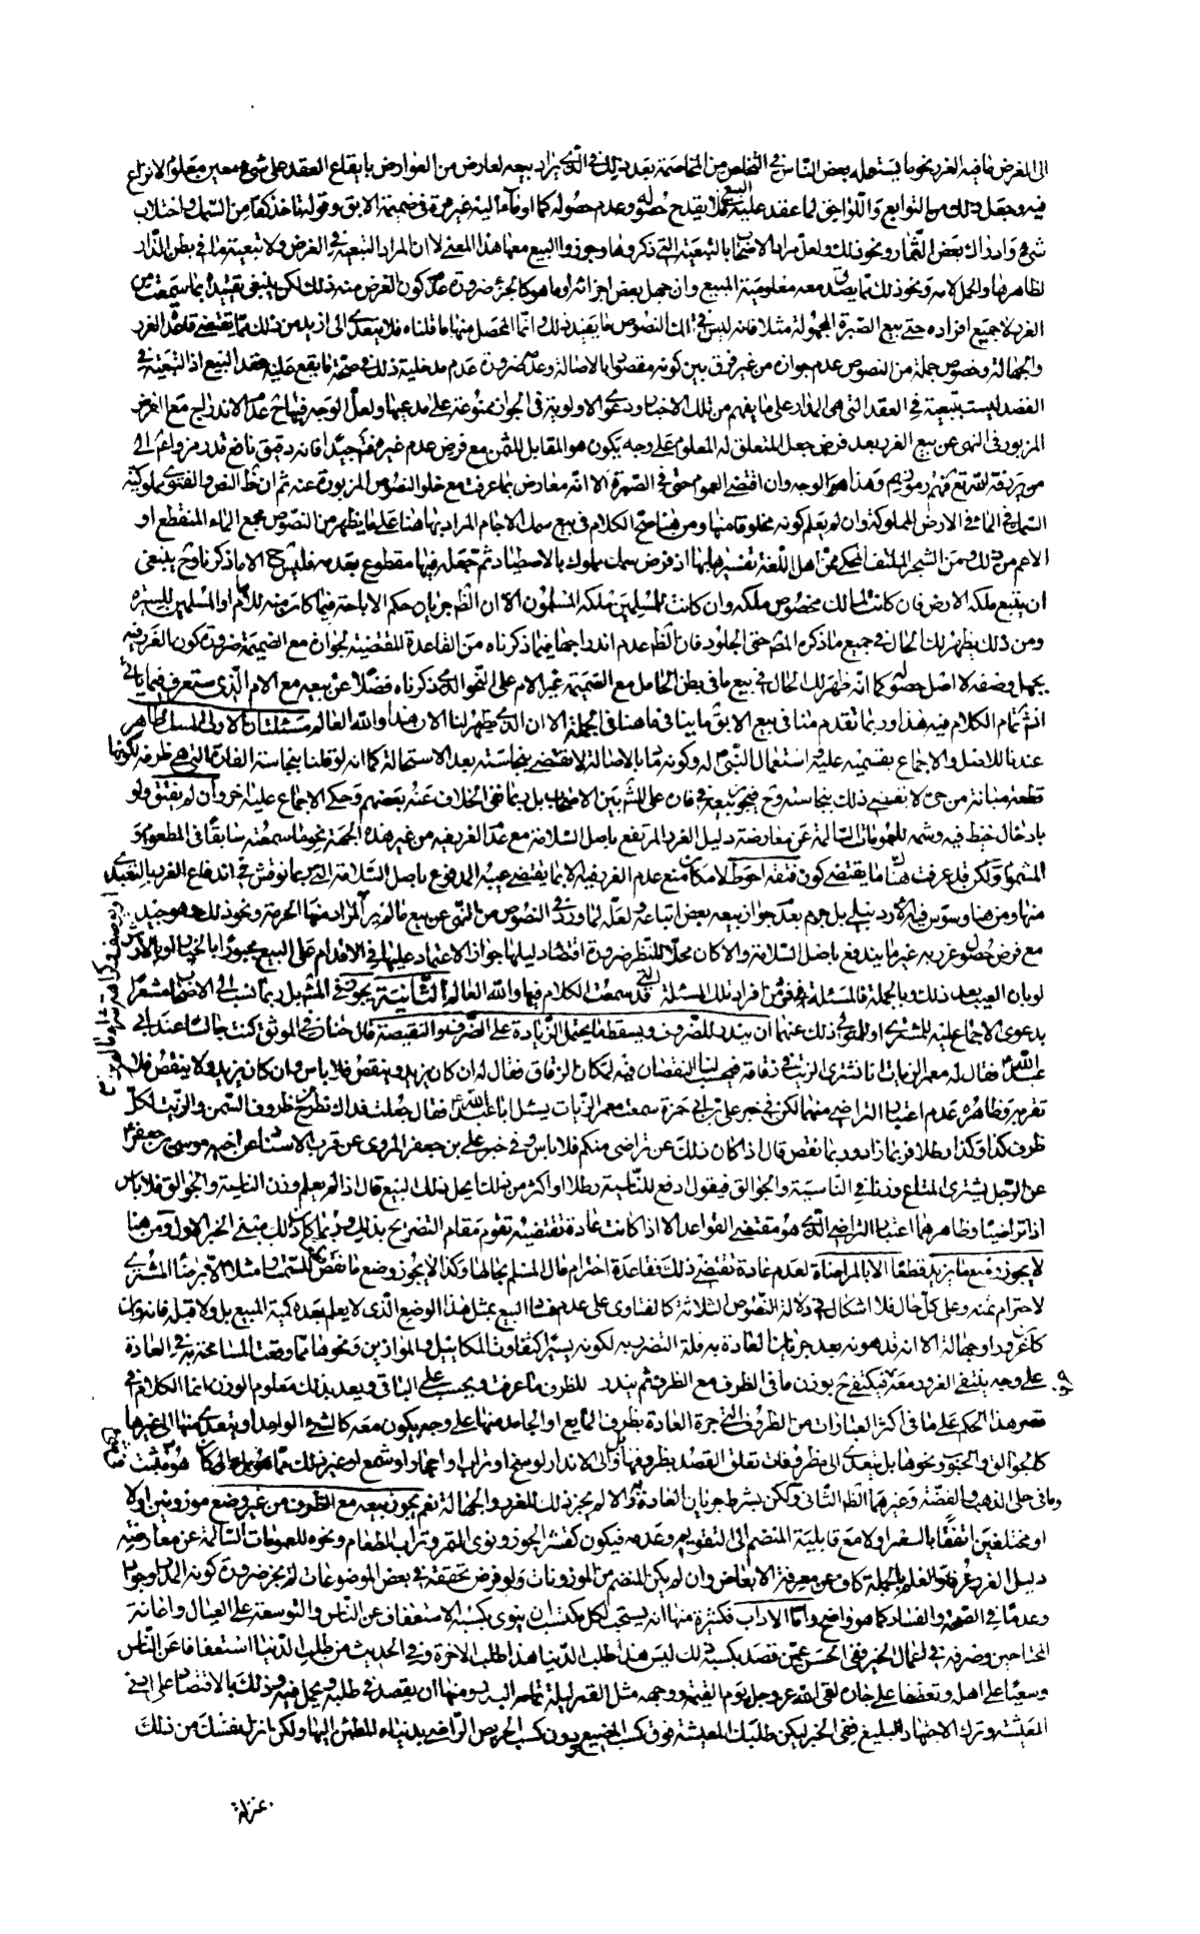 الى الغرض ما فيه الغرر نحو ما يستعمله بعض الناس في التخلص من المخاصمة بعد ذلك في الذي يراد بيعه لعارض من العوارض بايقاع العقد على شيء معين معلوم
فيه وجعل ذلك من التوابع واللواحق لما عقد عليه البيع فلا يقدح حصوله وعدم حصوله كما اومأ اليه غير مرة في ضميمة الابق وقوله فاخذ كفا من السمك واحتلاب
شيء وادراك بعض الثمار ونحو ذلك ولعل مراد الاصحاب بالتبعية التي ذكروها وجوزوا البيع معها هذا المعنى لا ان المراد التبعية في الغرض ولا تبعية ما في بطن الدار
لظاهرها والحمل لامه ونحو ذلك مما يصدق معه معلومية المبيع وان جهل بعض اجزائه او ما هو كالجزء ضرورة عدم كون الغرض منه ذلك لكن ينبغي تقييده بما سمعت من
الغرر لا جميع افراده حتى بيع الصبرة المجهولة مثلا فانه ليس في تلك النصوص ما يفيد ذلك انما المحصل منها ما قلناه فلا يتعدى الى ازيد من ذلك مما يقتضي قاعدة الغرر
والجهالة وخصوص جملة من النصوص عدم جوازه من غير فرق بين كونه مقصودا بالاصالة وعدمه ضرورة عدم مدخلية ذلك في صحة ما يقع عليه عقد البيع اذ التبعية في
القصد ليست بتبعية في العقد التي هي المدار على ما يفهم من تلك الاخبار ودعوى الاولوية في الجواز ممنوعة على مدعيها ولعل الوجه فيها ح عدم الاندراج مع الفرض
المزبور في النهي عن بيع الغرر بعد فرض جعل المتعلق له المعلوم على وجه يكون هو المقابل للثمن مع فرض عدم غيره فتأمل جيدا فانه دقيق نافع
السمك في الماء في الارض المملوكة وان لم يعلم كونه مخلوقا منها ومن هنا صح الكلام في بيع سمك الاجام المراد بها هنا على ما يظهر من النصوص مجمع الماء المنقطع او
الاعم من ذلك ومن الشجر الملتف المحكي عن اهل اللغة تفسيرها بها اذ فرض سمك مملوك بالاصطياد ثم جعله فيها مقطوع بعدمه فليس ح الا ما ذكرنا وح ينبغي
ان يتبع ملكه الارض فان كانت لمالك مخصوص ملكه وان كانت للمسلمين ملكه المسلمون الا ان الظ جريان حكم الاباحة فيما كان منه للامام او المسلمين للسيرة
ومن ذلك يظهر لك الحال في جميع ما ذكره المص حتى الجلود فان الظ عدم اندراجها فيما ذكرناه من القاعدة المقتضية لجوازه مع الضميمة ضرورة كون الغرر فيه
بجهل وصفه لا اصل حصوله كما انه ظهر لك الحال في بيع ما في بطن الحامل مع الضميمة غير الام على النحو الذي ذكرناه فضلا عن بيعه مع الام الذي ستعرف فيما ياتي
انش تمام الكلام فيه هذا وربما تقدم منا في بيع الابق ما ينافي ما هنا في الجملة الا ان الذي ظهر لنا الان هذا والله العالم مسئلتان الاولى المسك طاهر
عندنا للاصل والاجماع بقسميه عليه استعمال النبي ص له وكونه دما بالاصالة لا يقتضي بنجاسته بعد الاستحالة كما انه لو قلنا بنجاسة الفارة التي هي ظرفه لكونها
قطعة مبانة من حي لا تقتضي ذلك بنجاسته وح فيجوز بيعه في فاره على المش بين الاصحاب بل ربما نفي الخلاف عنه بعضهم وحكي الاجماع عليه اخر وان لم يفتق ولو
بادخال خيط فيه وشمه للعمومات السالمة عن معارضة دليل الغرر المرتفع باصل السلامة مع عدم الغرر فيه من غير هذه الجهة نحو ما سمعته سابقا في المطعوم و
المشموم ولكن قد عرفت هناك ما يقتضي كون فتقه احوط لامكان منع عدم الغرر فيه الا بما يقتضي عيبه المدفوع باصل السلامة التي ربما نوقش في اندفاع الغرر بالتعبدي
منها ومن هنا وسوس فيه الاردبيلي بل جزم بعدم جواز بيعه بعض اتباعه لعله لما ورد في النصوص من النهي عن بيع ما لم ير المراد منها الحرمة ونحو ذلك وهو جيد
مع فرض حصول غرر به غير ما يندفع باصل السلامة والا كان محلا للنظر ضرورة اقتضاء دليلها جواز الاعتماد عليها في الاقدام على البيع مجبورا بالخيار
لو بان العيب بعد ذلك وبالجملة فالمسئلة فرد من افراد تلك المسئلة التي قد سمعت الكلام فيها والله العالم الثانية يجوز في المش بل ربما نسب الى الاصحاب مشعرا
بدعوى الاجماع عليه للمشتري او للموكول ذلك عنهما ان يندر للظروف ويسقط ما يحتمل الزيادة على الظروف والنقيصة قال حنان في الموثق كنت جالسا عند ابي
عبد الله ع فقال له معمر الزيات انا نشتري الزيت في زقاقه فيحسب لنا النقصان فيه لمكان الزقاق فقال له ان كان يزيد وينقص فلا باس وان كان يزيد ولا ينقص فلا
تقربه وظاهره عدم اعتبار التراضي منهما لكن في خبر علي بن ابي حمزة سمعت معمر الزيات يسئل ابا عبد الله ع فقال جعلت فداك نطرح ظروف السمن والزيت لكل
ظرف كذا وكذا رطلا فربما زاد وربما نقص قال اذا كان ذلك عن تراضي منكم فلا باس وفي خبر علي بن جعفر المروي عن قرب الاسناد عن اخيه موسى بن جعفر ع
عن الرجل يشتري المتاع وزنا في الناسية والجوالق فيقول ادفع للناسية رطلا او اكثر من ذلك ايحل ذلك البيع قال اذا لم يعلم وزن الناسية والجوالق فلا باس
اذا تراضيا وظاهرهما اعتبار التراضي الذي هو مقتضى القواعد الا اذا كانت عادة تقتضيه تقوم مقام التصريح بذلك وربما كان ذلك مبنى الخبر الاول ومن هنا
لا يجوز وضع ما يزيد قطعا الا بالمراضاة لعدم عادة تقتضي ذلك فقاعدة احترام مال المسلم بحالها وكذا لا يجوز وضع ما نقص
لاحترام ثمنه وعلى كل حال فلا اشكال في دلالة النصوص الثلاثة كالفتاوى على عدم فساد البيع بمثل هذا الوضع الذي لا يعلم بعده كمية المبيع بل ولا قبله فانه وان
كان غررا وجهالة الا انه قد هونه بعد جريان العادة به قلة التضرر به لكونه يسيرا كتفاوت المكاييل والموازين ونحوها مما وقعت المسامحة به في العادة
على وجه ينتفي الغرر معه فيكتفي ح بوزن ما في الظرف مع الظرف ثم يندر للظرف ما عرفت ويحسب على الباقي ويعد بذلك معلوم الوزن انما الكلام في
قصر هذا الحكم على ما في اكثر العبارات من الظروف التي جرت العادة بظرف المايع او الجامد منها على وجه يكون معه كالشيء الواحد او يتعدى منها الى غيرها
كالجوالق والحبوب ونحوها بل يتعدى الى مظروفات تعلق القصد بظروفها بل والى الاندار لوسخ او تراب او احجار او شمع او غير ذلك
وما في حلي الذهب والفضة وغيرهما الظ الثاني ولكن بشرط جريان العادة به والا لم يجز ذلك للغرر والجهالة نعم يجوز بيعه مع الظروف من غير وضع موزونين اولا
او مختلفين اتفقا بالسعر اولا مع قابلية المنضم الى التقويم وعدمه فيكون كقشر الجوز ونوى التمر وتراب الطعام ونحوه للعمومات السالمة عن معارضته
دليل الغرر عرفا والعلم بالجملة كاف عن معرفة الابعاض وان لم يكن المنضم من الموزونات ولو فرض تحققه في بعض الموضوعات لم يجز ضرورة كونه المدار وجودا
وعدما في الصحة والفساد كما هو واضح واما الاداب فكثيرة منها انه يستحب لكل مكتسب ان ينوي بكسبه الاستعفاف عن الناس والتوسعة على العيال واعانة
المحتاجين وصرفه في اعمال الخير ففي الحسن عمن قصد بكسبه ذلك ليس هذا طلب الدنيا هذا طلب الاخرة وفي الحديث من طلب الدنيا استعفافا عن الناس
وسعيا على اهله وتعطفا على جاره لقي الله عز وجل يوم القيمة ووجهه مثل القمر ليلة تمامه البدر ومنها ان يقصد في طلبه
المعيشة وترك الاجتهاد البليغ ففي الخبر ليكن طلبك المعيشة فوق كسب المضيع ودون كسب الحريص الراضي بدنياه المطمئن اليها ولكن انزل نفسك من ذلك
بمنزلة